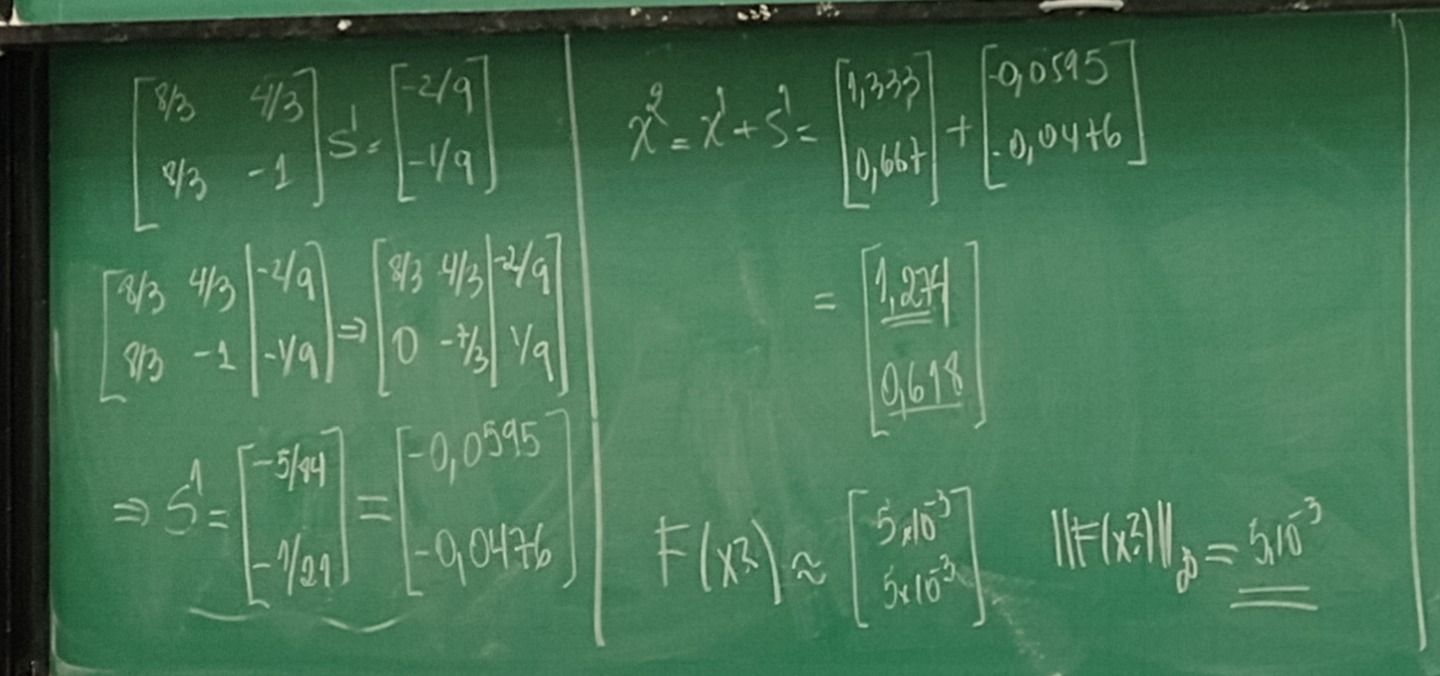 [8/3 4/3; 8/3 -1] S¹ = [-2/9; -1/9]
[8/3 4/3 | -2/9; 8/3 -1 | -1/9] ⇒ [8/3 4/3 | -2/9; 0 -7/3 | 1/9]
⇒ S¹ = [-5/84; -1/21] = [-0,0595; -0,0476]
x² = x¹ + S¹ = [1,333; 0,667] + [-0,0595; -0,0476]
= [1,274; 0,618]
F(x²) ≈ [5x10⁻³; 5x10⁻³] ||F(x²)||∞ = 5x10⁻³